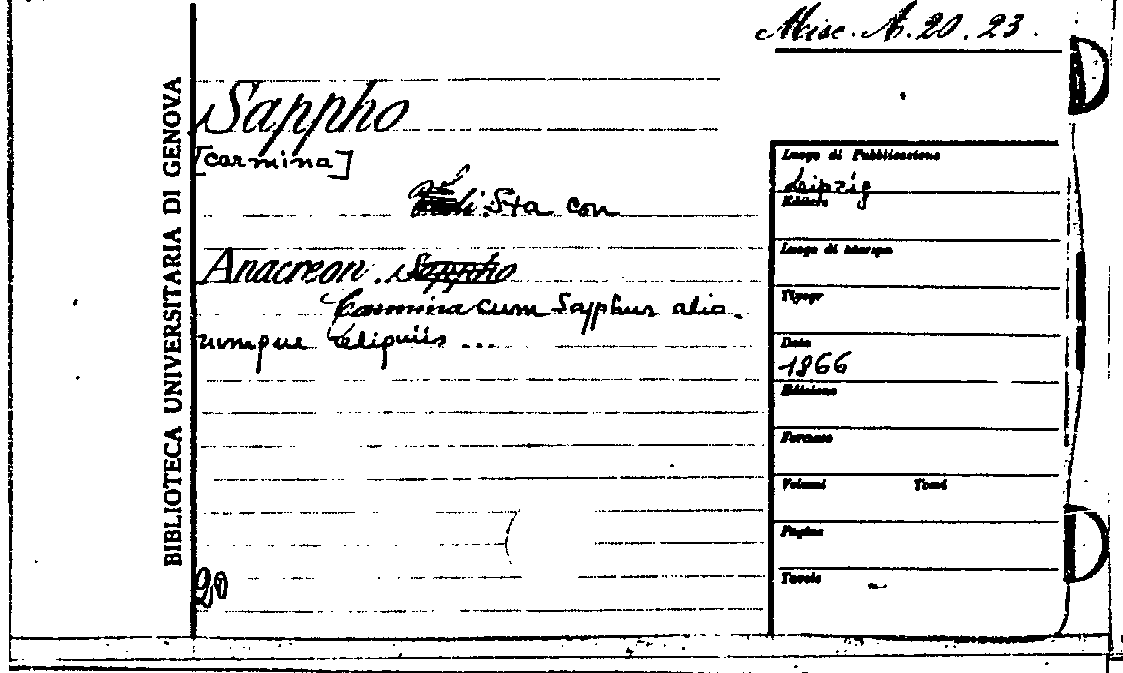 Misc. A. 20. 23.
BIBLIOTECA UNIVERSITARIA DI GENOVA
Sappho
[carmina]
Sta con
Anacreon. Sappho
Carmina cum Sapphus alia-
rumque reliquiis ...
20
Luogo di Pubblicazione
Leipzig
Editore
Luogo di stampa
Tipogr
Data
1866
Edizione
Formato
Volumi Tomi
Pagine
Tavole